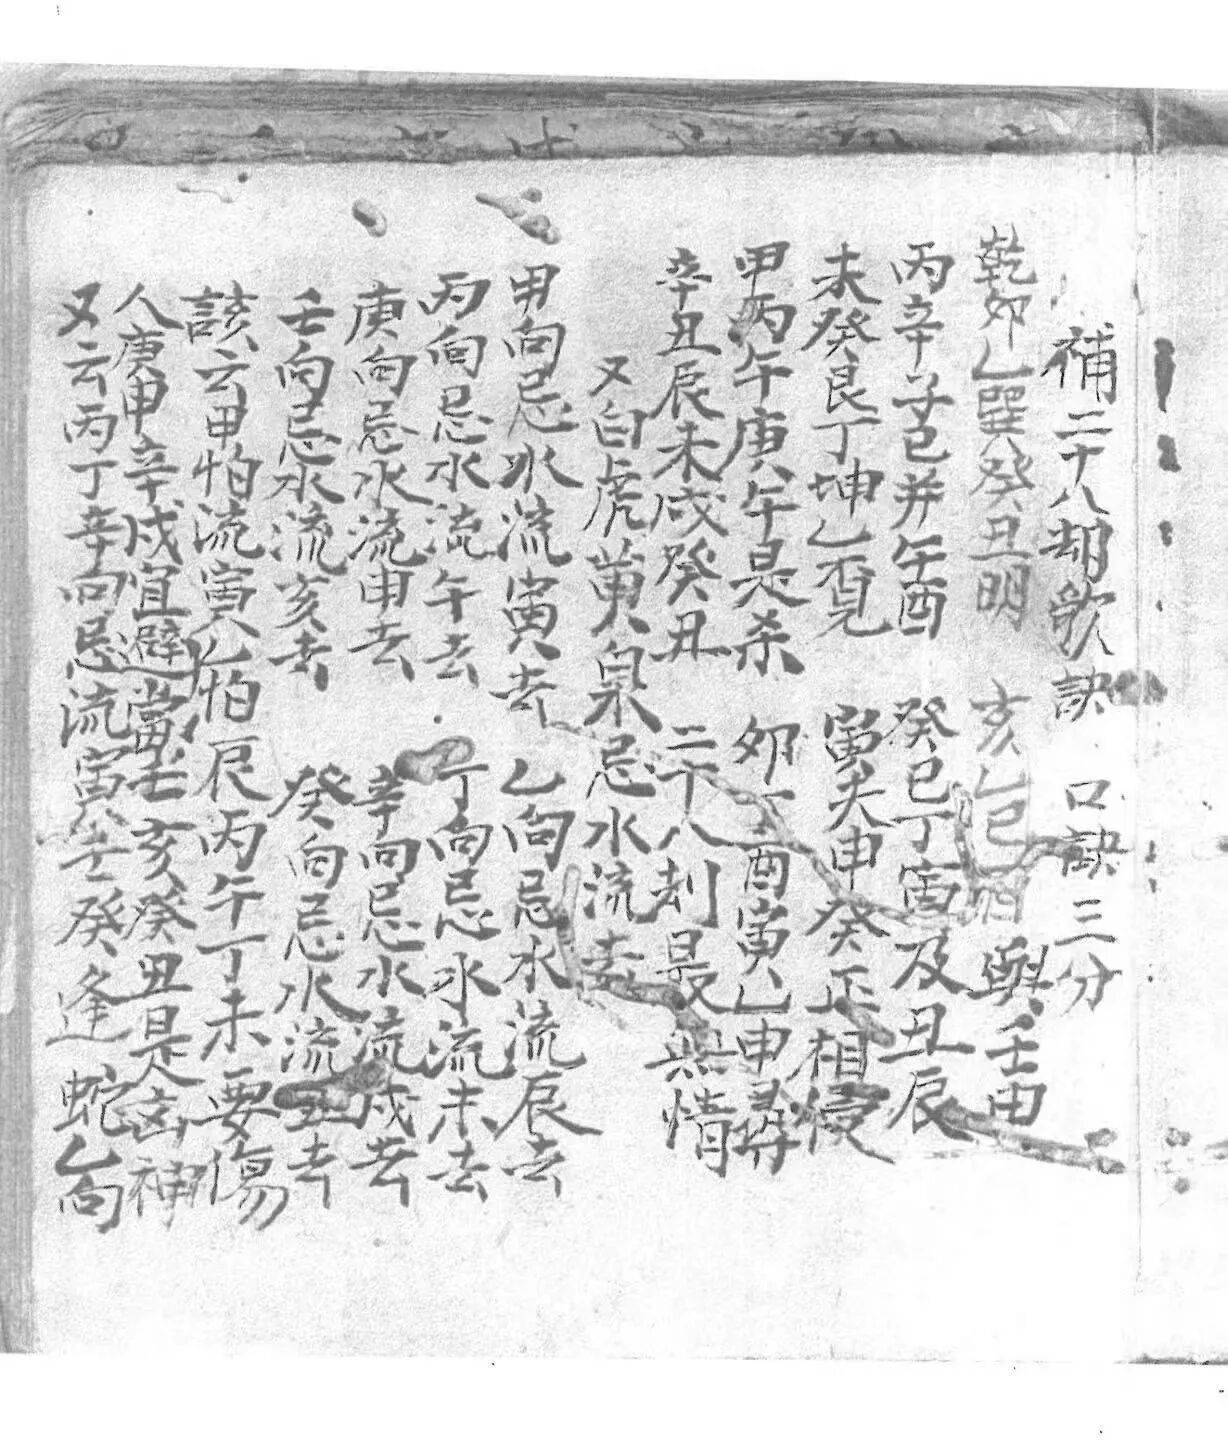 補二十八刼歌訣 口訣三分
乾卯乙巽癸丑明 亥乙巳酉與壬申
丙辛子巳并午酉 癸巳丁寅及丑辰
未癸艮丁坤乙覓 寅夫申癸正相侵
甲丙午庚午是杀 卯 酉寅乙申尋
辛丑辰未戌癸丑 二十八刦最無情
又白虎黄泉忌水流去
甲向忌水流寅去 乙向忌水流辰去
丙向忌水流午去 丁向忌水流未去
庚向忌水流申去 辛向忌水流戌去
壬向忌水流亥去 癸向忌水流丑去
訣云甲怕流寅乙怕辰丙午丁未要傷
人庚申辛戌宜避當壬亥癸丑是凶神
又云丙丁辛向忌流寅壬癸逢蛇乙向